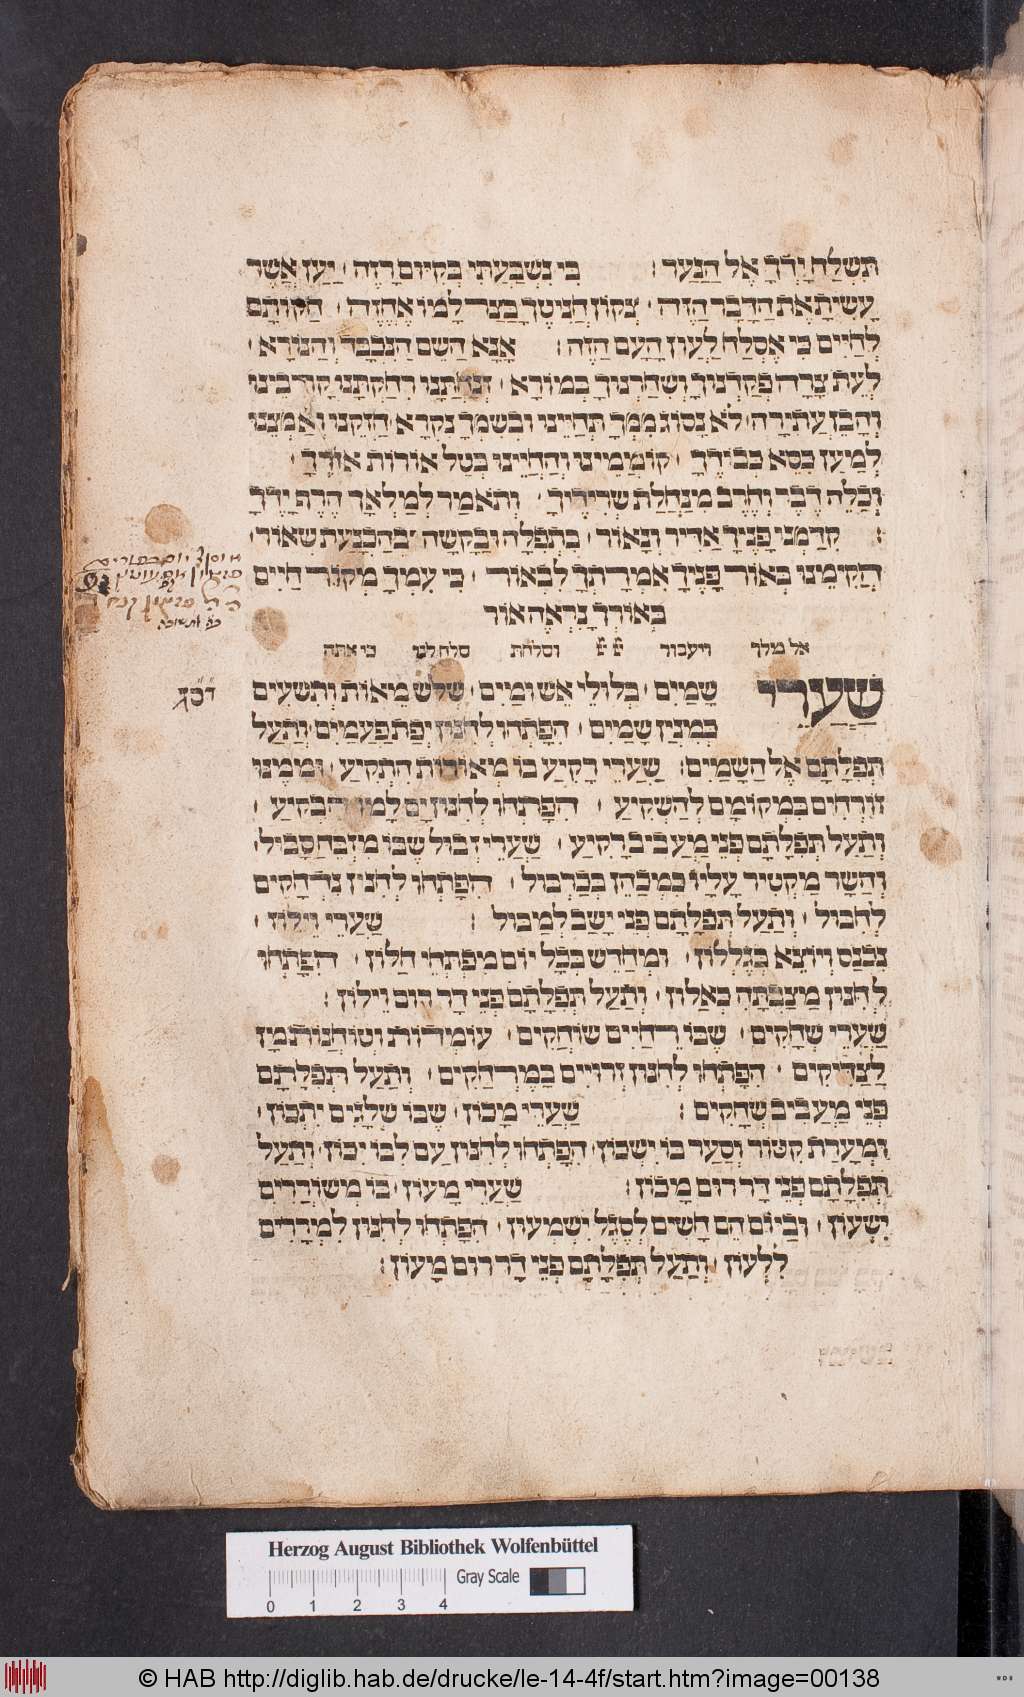 תִּשְׁלַח יָדְךָ אֶל הַנַּעַר : כִּי נִשְׁבַּעְתִּי בְּקִיּוּם רָזֶה יַעַן אֲשֶׁר
עָשִׂיתָ אֶת הַדָּבָר הַזֶּה צָקוּן לָמוֹ אֶחֱזֶה
לְחַיִּים כִּי אֶסְלַח לַעֲוֹן הָעָם הַזֶּה : אָנָּא הַשֵּׁם הַנִּכְבָּד וְהַנּוֹרָא
לְעֵת צָרָה פְּקַדְנוּךָ וְשִׁחַרְנוּךָ בְּמוֹרָא
לֹא נָסוּג מִמְּךָ תְּחַיֵּינוּ וּבְשִׁמְךָ נִקְרָא
לְמַעַן כִּסֵּא כְבוֹדֶךָ קוֹמְמֵינוּ וְהַחֲיֵינוּ בְּטַל אוֹרוֹת אוֹדֶךָ
וְכַלֵּה דֶבֶר וְחֶרֶב מִנַּחֲלַת שְׂרִידֶיךָ וְתֹאמַר לַמַּלְאָךְ הֶרֶף יָדֶךָ
: קִדַּמְנוּ פָנֶיךָ אַדִּיר וְנָאוֹר בִּתְפִלָּה וּבַקָּשָׁה
הֲקִימֵנוּ בְּאוֹר פָּנֶיךָ אִמְרָתְךָ לִבְאוֹר כִּי עִמְּךָ מְקוֹר חַיִּים
בְּאוֹרְךָ נִרְאֶה אוֹר
אל מלך ויעבור וסלחת סלח לנו כי אתה
שַׁעֲרֵי שָׁמַיִם בְּלוּלֵי אֵשׁ וּמַיִם שְׁלֹשׁ מֵאוֹת וְתִשְׁעִים
בְּמִנְיַן שָׁמַיִם הִפָּתְחוּ לְחִנּוּן יְפַת פַּעֲמַיִם וְתַעַל
תְּפִלָּתָם אֶל הַשָּׁמַיִם : שַׁעֲרֵי רָקִיעַ בּוֹ מְאוֹרוֹת הִתְקִיעַ וּמִמֶּנּוּ
זוֹרְחִים בִּמְקוֹמָם לְהַשְׁקִיעַ הִפָּתְחוּ לְחִנּוּן יָם לָמוֹ הִבְקִיעַ
וְתַעַל תְּפִלָּתָם פְּנֵי מַעֲבִיב רָקִיעַ שַׁעֲרֵי זְבוּל שֶׁבּוֹ מִזְבֵּחַ סָבוּל
וְהַשַּׂר מַקְטִיר עָלָיו כִּמְכַהֵן בְּכַרְבּוּל הִפָּתְחוּ לְחִנּוּן נִדְחָקִים
לְחִבּוּל וְתַעַל תְּפִלָּתָם פְּנֵי יָשַׁב לַמַּבּוּל : שַׁעֲרֵי וִילוֹן
נִכְנָס וְיוֹצֵא בְּגִלָּלוֹן וּמְחַדֵּשׁ בְּכָל יוֹם מִפְתְּחֵי חַלּוֹן הִפָּתְחוּ
לְחִנּוּן מַצַּבְתָּהּ כְּאַלּוֹן וְתַעַל תְּפִלָּתָם פְּנֵי דָר רוּם וִילוֹן :
שַׁעֲרֵי שְׁחָקִים שֶׁבּוֹ רֵחַיִם שׁוֹחֲקִים עוֹמְדוֹת וְטוֹחֲנוֹת מָן
לַצַּדִּיקִים הִפָּתְחוּ לְחִנּוּן זְרוּיִים בַּמֶּרְחַקִּים וְתַעַל תְּפִלָּתָם
פְּנֵי מַעֲבִיב שְׁחָקִים : שַׁעֲרֵי מָכוֹן שֶׁבּוֹ שְׁלָגִים יִתְכּוֹן
וּמְעָרַת קִטּוֹר וְסַעַר בּוֹ יִשְׁכּוֹן הִפָּתְחוּ לְחִנּוּן עַם לִבּוֹ יִכּוֹן וְתַעַל
תְּפִלָּתָם פְּנֵי דָר רוּם מָכוֹן : שַׁעֲרֵי מָעוֹן בּוֹ מְשׁוֹרְרִים
יִשְׁעוֹן וּבַיּוֹם הֵם חָשִׁים לְסֶגֶל יִשְׁמְעוּן הִפָּתְחוּ לְחִנּוּן לִמְדָרִים
לִלְעוֹן וְתַעַל תְּפִלָּתָם פְּנֵי דָר רוּם מָעוֹן :
Herzog August Bibliothek Wolfenbüttel
Gray Scale
0 1 2 3 4
© HAB http://diglib.hab.de/drucke/le-14-4f/start.htm?image=00138